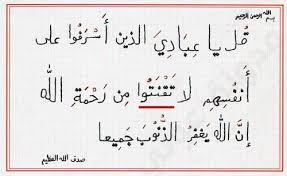 بسم الله الرحمن الرحيم
قُل يا عِبادِيَ الذين أَسْرَفُوا على
أَنفُسِهِم لا تَقْنَتُوا مِن رَحْمَةِ الله
إنَّ الله يَغْفِرُ الذُّنُوبَ جَمِيعا
صدق الله العظيم